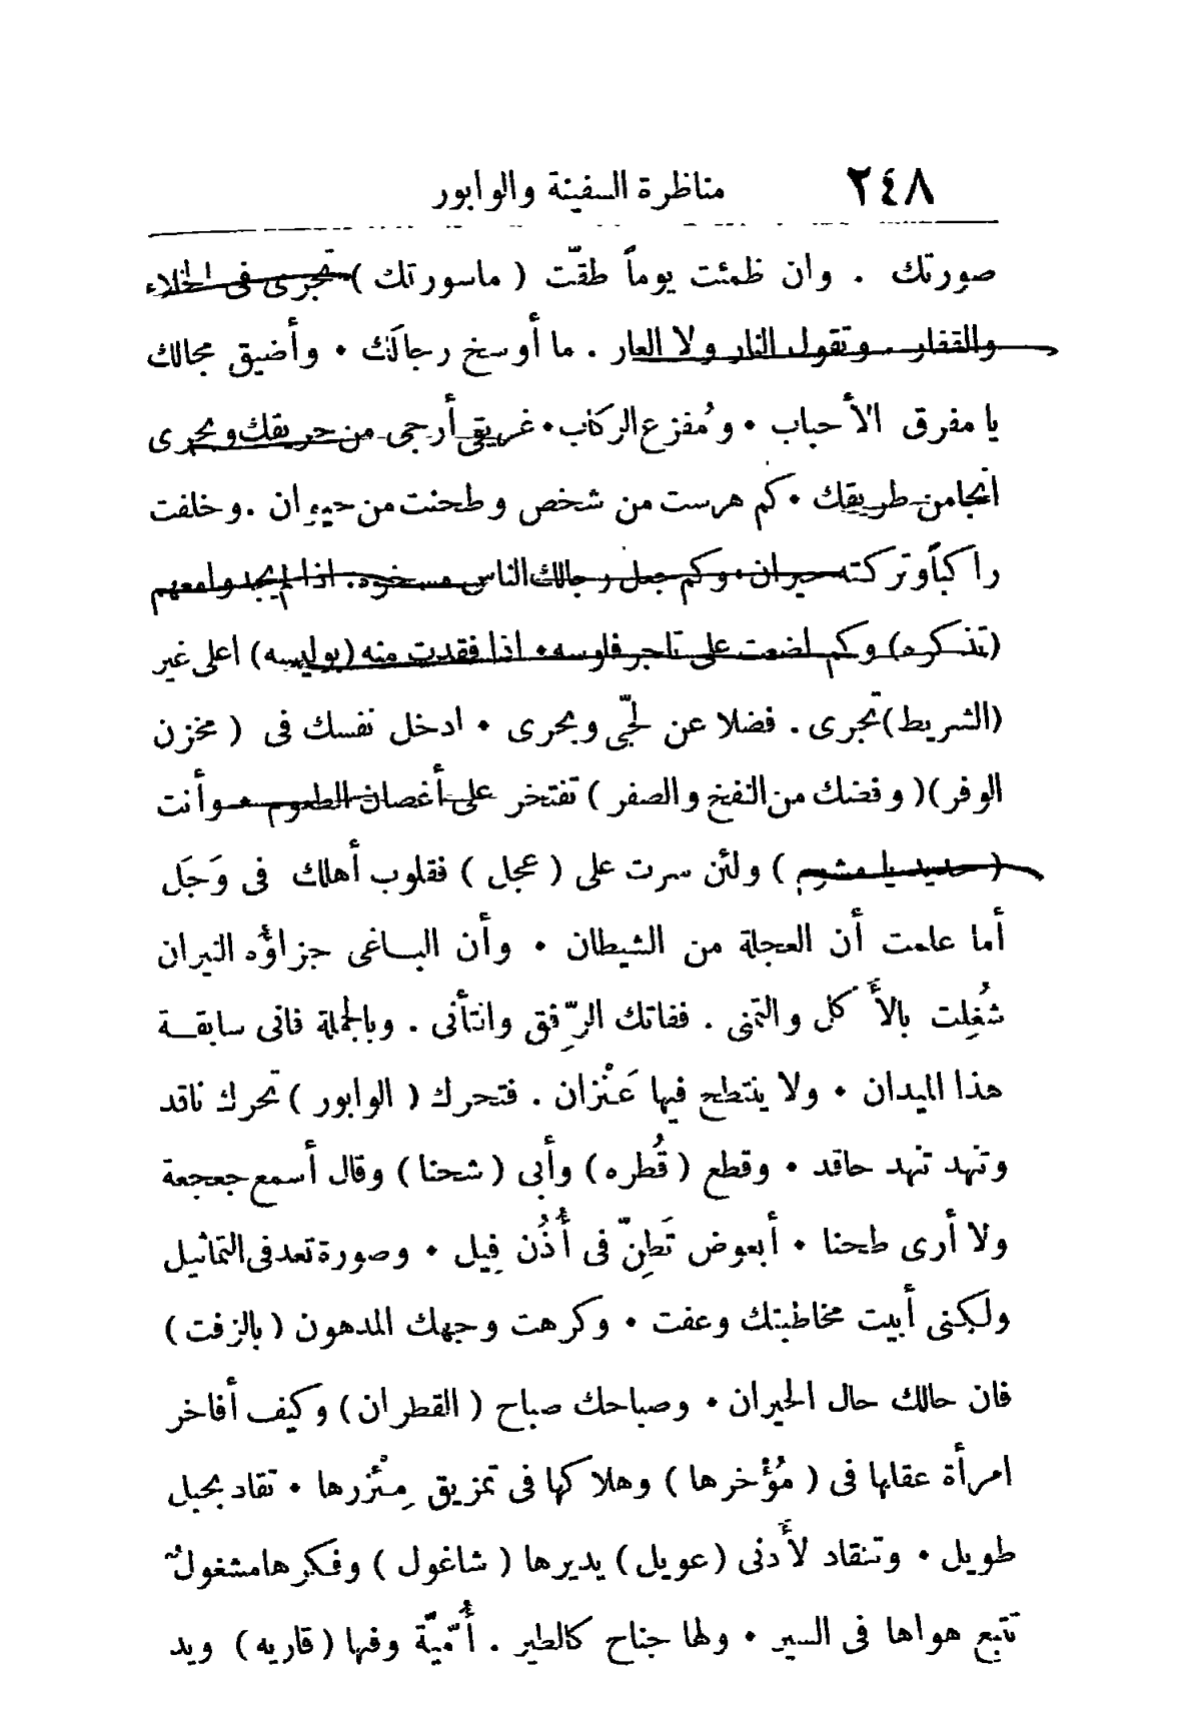 ٢٤٨ مناظرة السفينة والوابور
صورتك . وان ظمئت يوماً طقّت ( ماسورتك ) تجرى فى الخلاء
والقفار . وتقول النار ولا العار . ما أوسخ رجالك • وأضيق مجالك
يا مفرق الأحباب • ومُفزع الركاب • غريقى أرجى من حريقك وبحرى
انجا من طريقك • كم هرست من شخص وطحنت من حيوان . وخلفت
راكباً وتركته حيران • وكم جعل رجالك الناس مسخره . اذا لم يجدوا معهم
(تذكره) وكم اضعت على تاجر فلوسه • اذا فقدت منه (بوليسه) اعلى غير
(الشريط) تجرى . فضلا عن لجّى وبحرى • ادخل نفسك فى ( مخزن
الوفر )( وفضك من النفخ والصفر ) تفتخر على أغصان الطعوم • وأنت
( حديد يا مشوم ) ولئن سرت على ( عجل ) فقلوب أهلك فى وَجَل
أما علمت أن العجلة من الشيطان • وأن البـاغى جزاؤه النيران
شُغِلت بالأَكل والتمنى . ففاتك الرِّفق وانتأنى . وبالجملة فانى سابقـة
هذا الميدان • ولا ينتطح فيها عَنْزان . فتحرك ( الوابور ) تحرك ناقد
وتنهد تنهد حاقد • وقطع ( قُطره ) وأبى ( شحنا ) وقال أسمع جعجعة
ولا أرى طحنا • أبعوض تَطِنّ فى أُذُن فِيل • وصورة تعد فى التماثيل
ولكنى أبيت مخاطبتك وعفت • وكرهت وجهك المدهون ( بالزفت )
فان حالك حال الحيران • وصباحك صباح ( القطران ) وكيف أفاخر
امرأة عقلها فى ( مُؤْخرها ) وهلاكها فى تمزيق مِئْزرها • تقاد بحبل
طويل • وتنقاد لأَدنى (عويل) يديرها ( شاغول ) وفكرها مشغولٌ
تتبع هواها فى السير • ولها جناح كالطير . أُمّيّة وفيها ( قاريه ) ويد